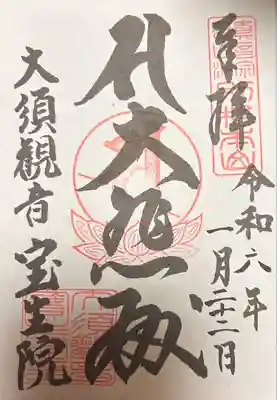 奉拝
令和六年
一月二十二日
大悲殿
大須観音 宝生院